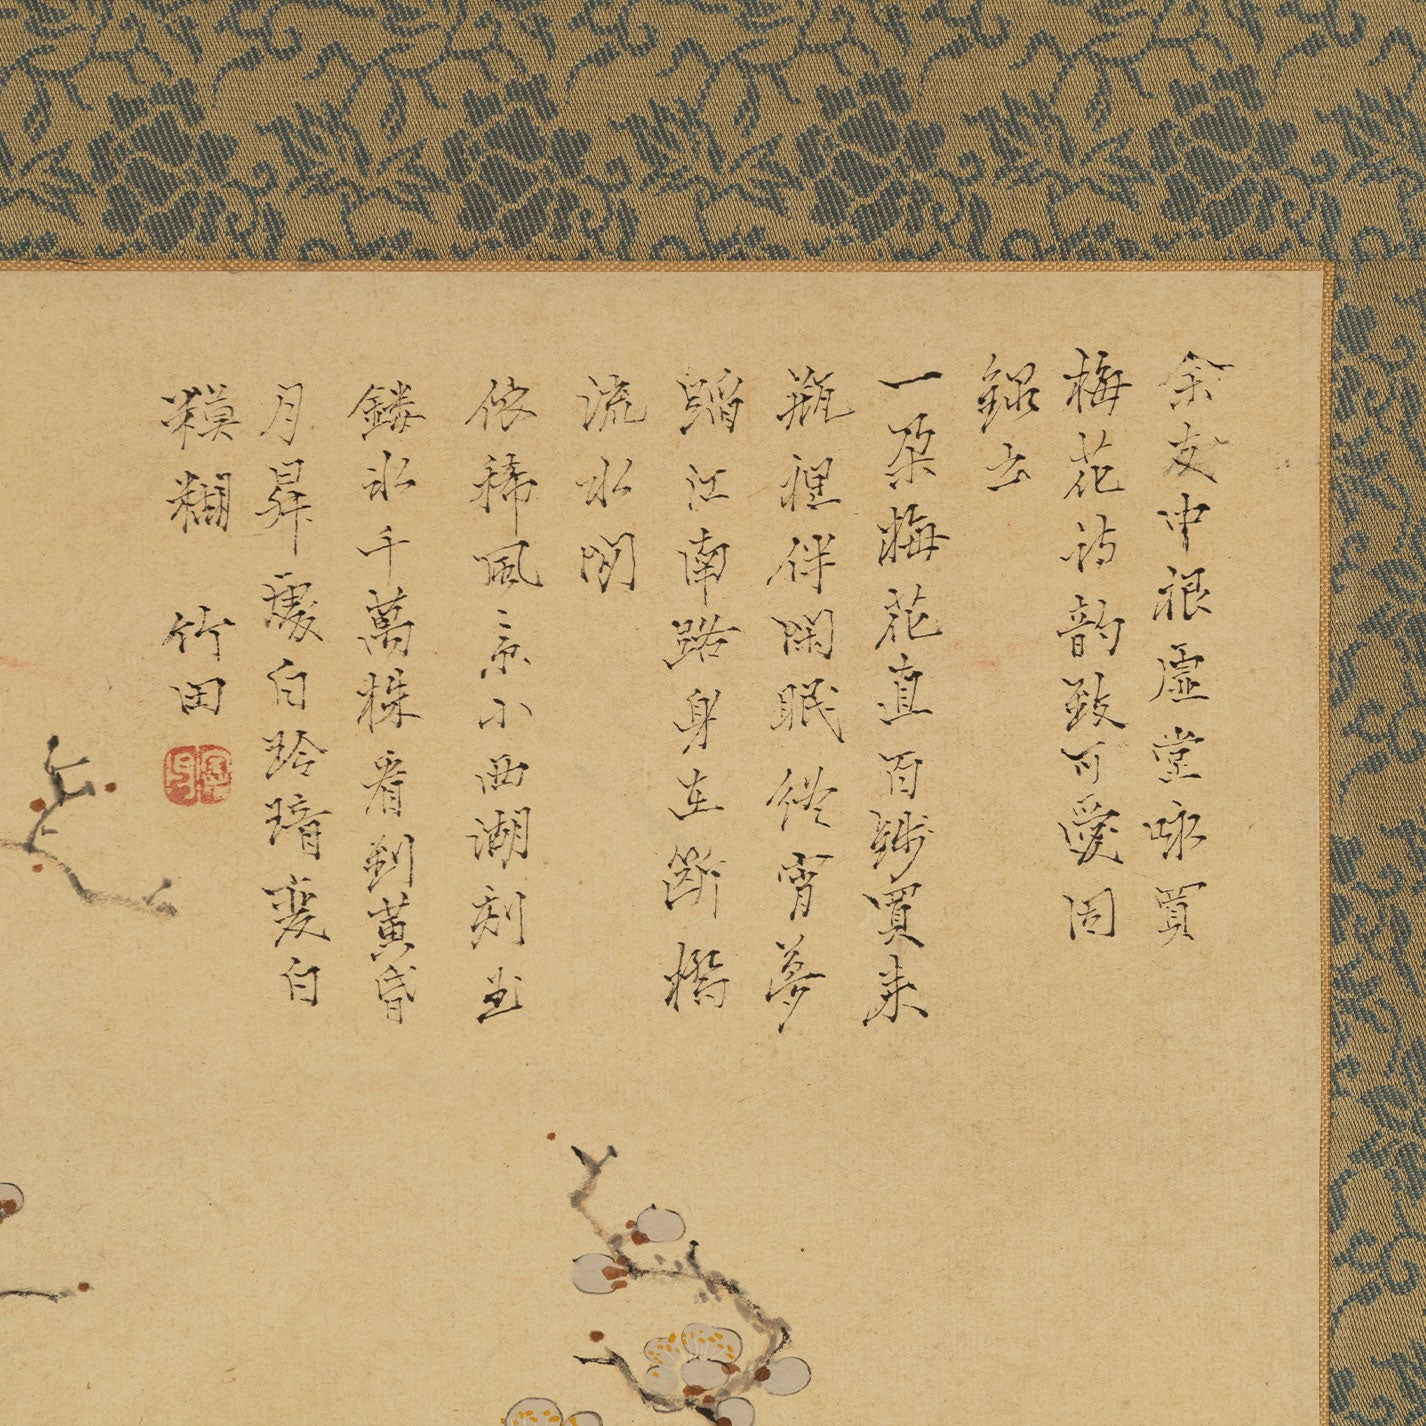 余友中根虚堂咏買
梅花詩韵致可愛因
録云
一朶梅花直百錢買来
瓶裡伴閑眠終宵夢
蹈江南路身在断橋
流水間
依稀風景小西湖刻玉
鏤氷千萬株看到黄昏
月昇處白玲瓏裏白
糢糊 竹田